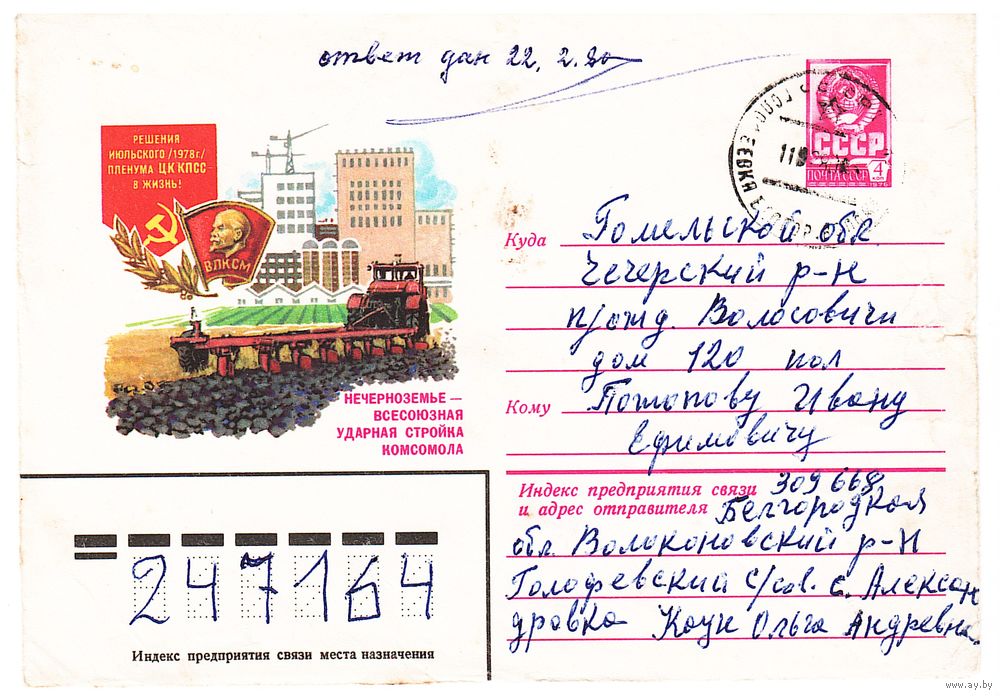 ответ дан 22. 2. 80
РЕШЕНИЯ
ИЮЛЬСКОГО /1978г/
ПЛЕНУМА ЦК КПСС
В ЖИЗНЬ!
ВЛКСМ
НЕЧЕРНОЗЕМЬЕ —
ВСЕСОЮЗНАЯ
УДАРНАЯ СТРОЙКА
КОМСОМОЛА
СССР
ПОЧТА СССР 4 КОП
1976
Куда Гомельской обл.
Чечерский р-н
п/отд. Волосовичи
дом 120 пол
Кому Потапову Ивану
Ефимовичу
Индекс предприятия связи 309668
и адрес отправителя Белгородкая
обл. Волоконовский р-н
Голофевский с/сов. с. Алексан
дровка Коун Ольга Андревна.
247164
Индекс предприятия связи места назначения
www.ay.by